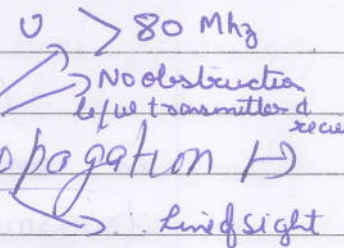 υ > 80 Mhz
No obstruction
b/w transmitter &
recie
pagation
∴ Line of sight